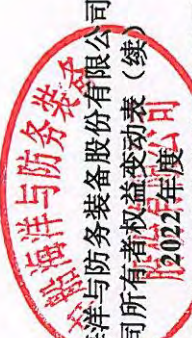 船海洋与防务装备
洋与防务装备股份有限公司
司所有者权益变动表（续）
2022年度